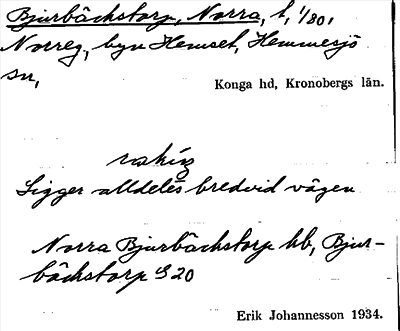 Bjurbäckstorp, Norra, t, 1/80,
Norreg, byn Hemset, Hemmesjö
sn,
Konga hd, Kronobergs län.
Ligger alldeles bredvid vägen
Norra Bjurbäckstorp hb, Bjur-
bäckstorp G 20
Erik Johannesson 1934.